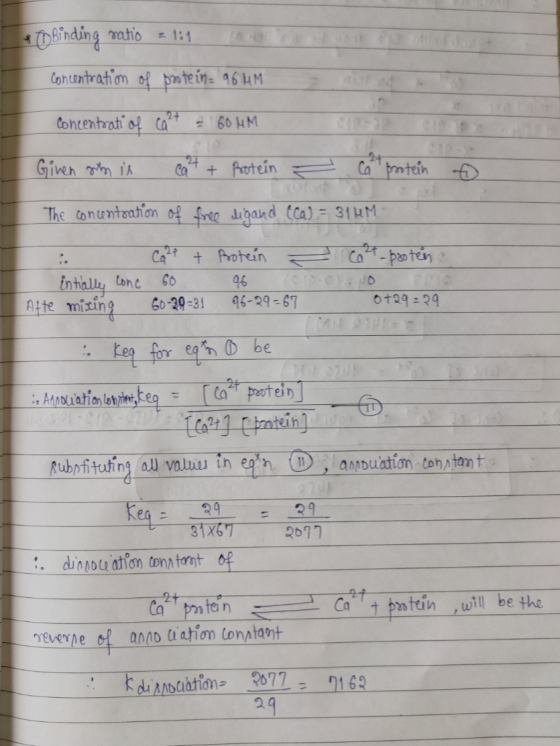 * ① Binding ratio = 1:1
Concentration of protein = 96 μM
Concentrati of Ca²⁺ = 60 μM
Given rxn is Ca²⁺ + Protein ⇌ Ca²⁺ protein —①
The concentration of free ligand (Ca) = 31 μM
∴ Ca²⁺ + Protein ⇌ Ca²⁺-protein
Initially conc 60 96 0
Afte mixing 60-29=31 96-29=67 0+29=29
∴ Keq for eqxn ① be
∴ Association constant, Keq = [Ca²⁺ protein] / [Ca²⁺] [protein] —⑪
Substituting all values in eqxn ⑪, association constant
Keq = 29 / 31×67 = 29 / 2077
∴ dissociation constant of
Ca²⁺ protein ⇌ Ca²⁺ + protein, will be the
reverse of association constant
∴ K dissociation = 2077 / 29 = 7162